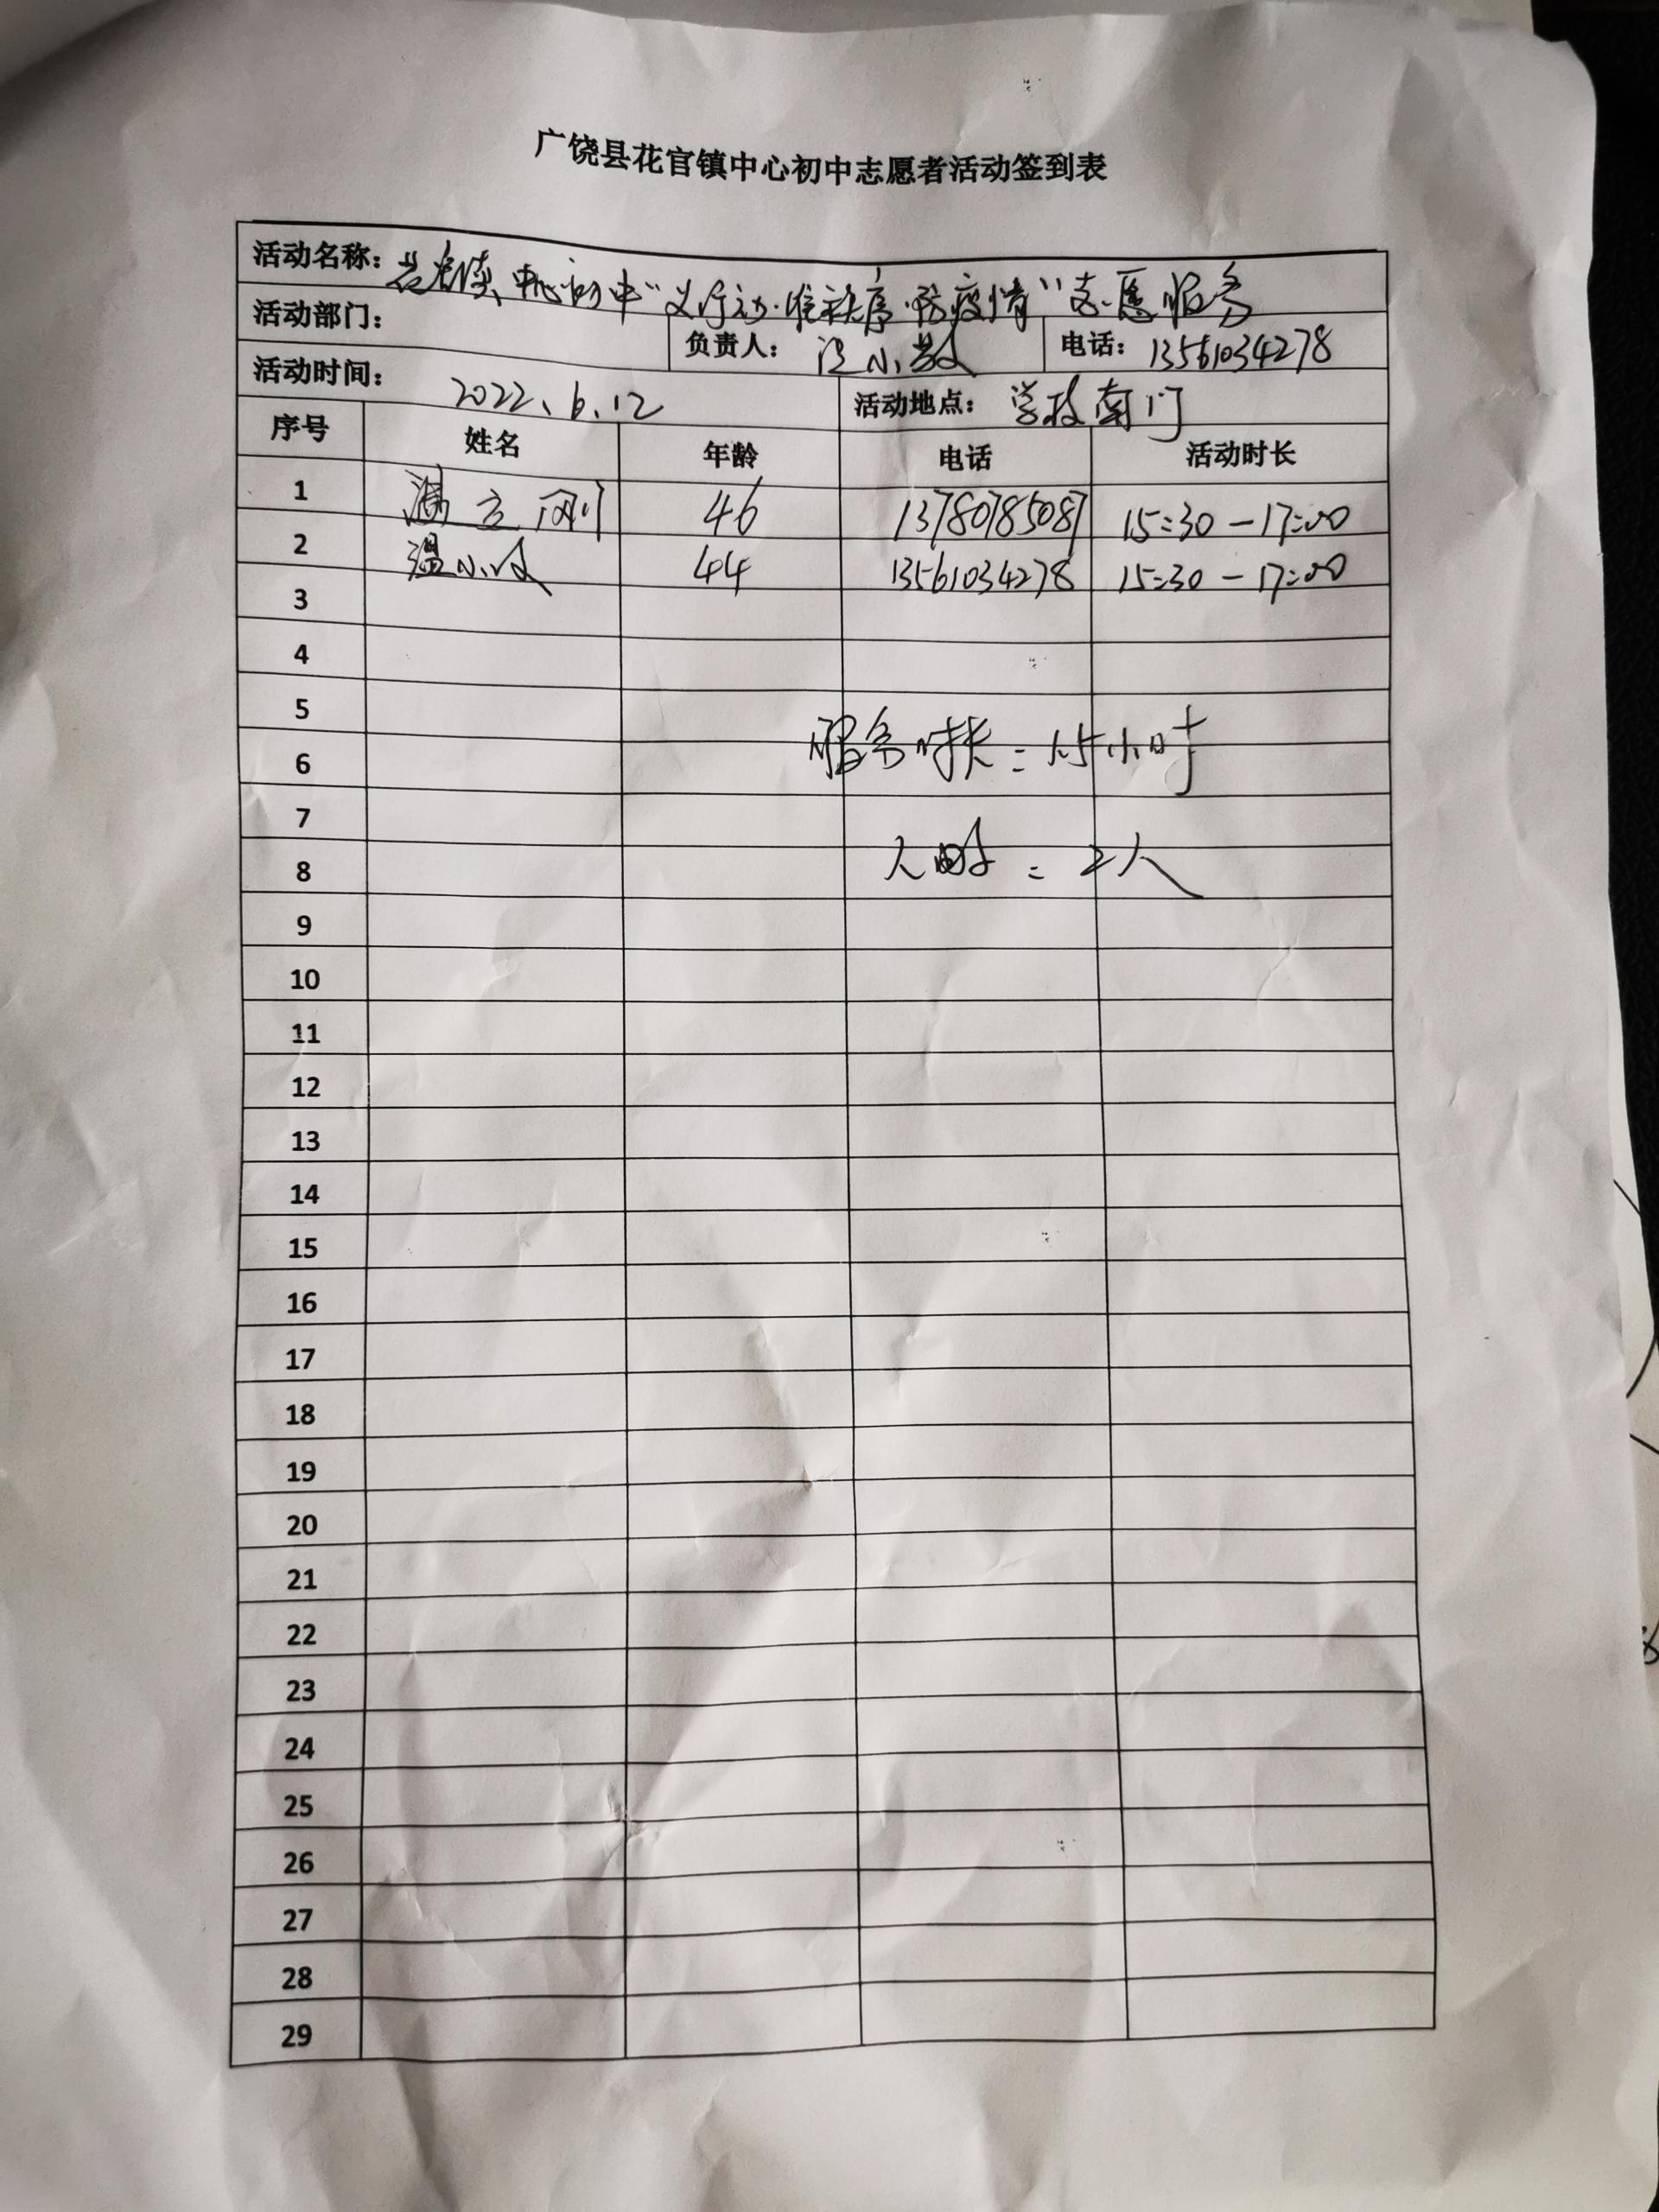 广饶县花官镇中心初中志愿者活动签到表
活动名称：花官镇中心初中“义行动·维秩序·防疫情”志愿服务
活动部门：
负责人：温小敏 电话：13561034278
活动时间：2022、6、12 活动地点：学校南门
序号 姓名 年龄 电话 活动时长
1 温立刚 46 13780785087 15:30-17:00
2 温小敏 44 13561034278 15:30-17:00
3
4
5
服务时长：1.5小时
6
7
8 人时：2人
9
10
11
12
13
14
15
16
17
18
19
20
21
22
23
24
25
26
27
28
29